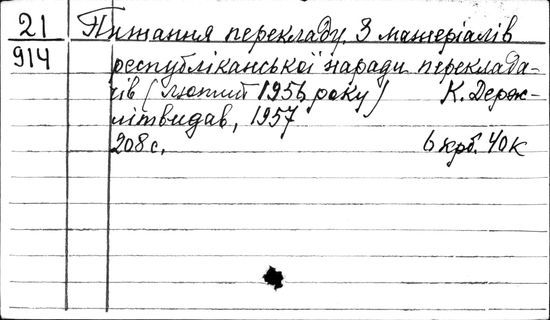 21
914
Питання перекладу. З матеріалів
республіканської наради переклада-
чів (лютий 1956 року) К. Держ-
літвидав, 1957
208 с. 6 крб. 40 к